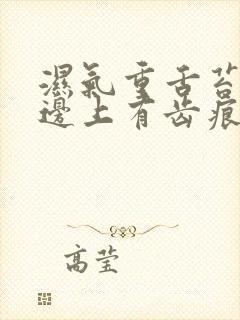 濕氣重舌苔
邊上有齿痕
高莹